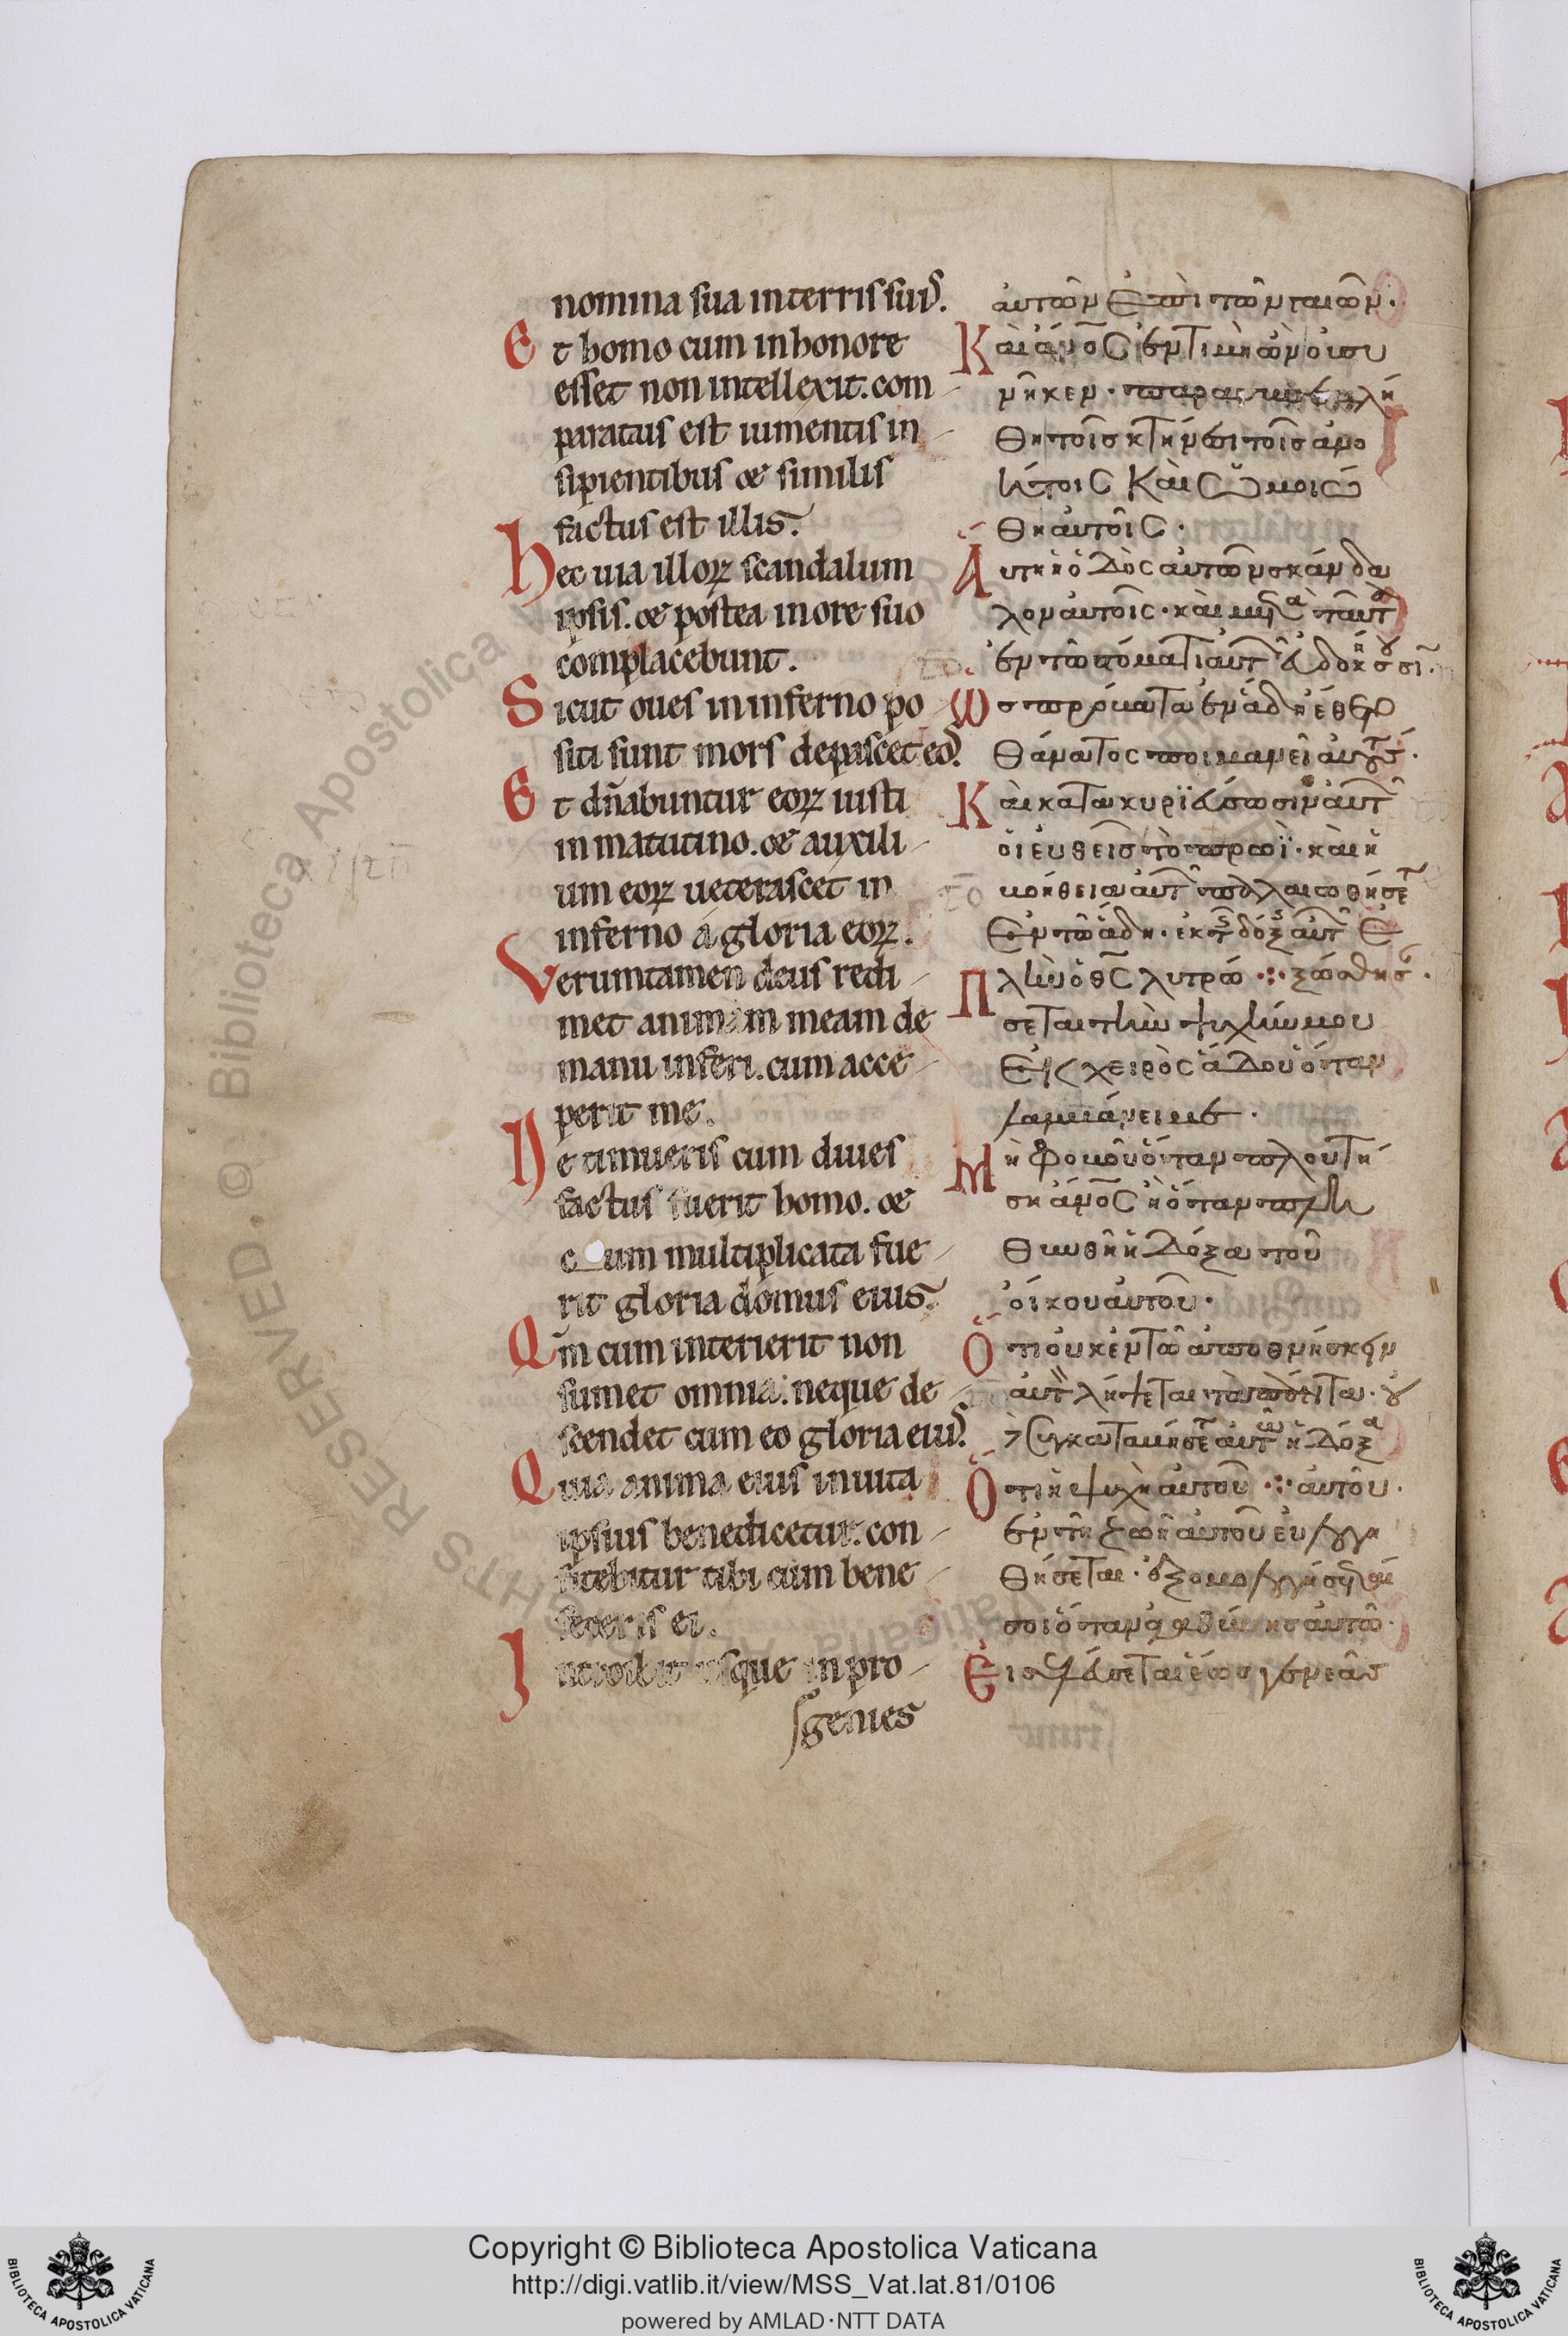 nomina sua in terris suis.
Et homo cum in honore
esset non intellexit. com
paratus est iumentis in
sipientibus & similis
factus est illis.
Hec uia illoꝝ scandalum
ipsis. & postea in ore suo
complacebunt.
Sicut oues in inferno po
siti sunt mors depascet eos.
Et dn̄abuntur eoꝝ iusti
in matutino. & auxili
um eoꝝ ueterascet in
inferno á gloria eoꝝ.
Verumtamen deus redi
met animam meam de
manu inferi. cum acce
perit me.
Ne timueris cum diues
factus fuerit homo. &
cum multiplicata fue
rit gloria domus eius.
Qm̄ cum interierit non
sumet omnia: neque de
scendet cum eo gloria eius.
Quia anima eius in uita
ipsius benedicetur. con
fitebitur tibi cum bene
feceris ei.
Introibit usque in pro
genies
ἀυτῶν ἐπὶ τῶν γαιῶν.
Καὶ ἄν̅ο̅ς ἐν τιμῆ ὢν ὀυ συ
νῆκεν. παρασυνεβλή
θη τοῖς κτήνεσι τοῖς ἀνο
ήτοις καὶ ὡμοιώ
θη ἀυτοῖς.
Ἄυτη ἡ ὁδὸς ἀυτῶν σκάνδα
λον ἀυτοῖς. καὶ μετὰ ταῦτ
ἐν τῶ στόματι ἀυτ ἐυδοκήσουσι.
Ὡς πρόματα ἐν ἅδη ἔθεντο
θάνατος ποιμανεῖ ἀυτούς.
Καὶ κατακυριέυσωσιν ἀυτ
ὁι ἐυθεῖς τὸ πρωΐ. καὶ ἡ
μοήθεια ἀυτ παλαιωθήσετ
ἐν τῶ ἅδη. ἐκ τῆς δόξης ἀυτ ἐ
Πλὴν ὁ θ̅ς̅ λυτρώ ⁘ ξώσθησ.
σεται τὴν ψυχήν μου
ἐκ χειρὸς ἅδου ὅταν
λαμμάνει με.
Μὴ φομοῦ ὅταν πλουτή
ση ἄν̅ο̅ς ἢ ὅταν πλη
θυνθῆ ἡ δόξα τοῦ
ὀίκου ἀυτοῦ.
Ὅτι ὀυκ ἐν τῶ ἀποθνήσκειν
ἀυτ λήψεται τὰ πάντα. ὀυ
δὲ συγκαταμήσετ ἀυτῶ ἡ δόξα
Ὅτι ἡ ψυχὴ ἀυτοῦ ⁘ ἀυτοῦ.
ἐν τῆ ζωῆ ἀυτοῦ ἐυλογη
θήσεται. ἐξομολογήσεταί
σοι ὅταν ἀγαθύνης ἀυτῶ.
Ἐισελέυσεται ἕως γενεᾶς
Copyright © Biblioteca Apostolica Vaticana
http://digi.vatlib.it/view/MSS_Vat.lat.81/0106
powered by AMLAD·NTT DATA